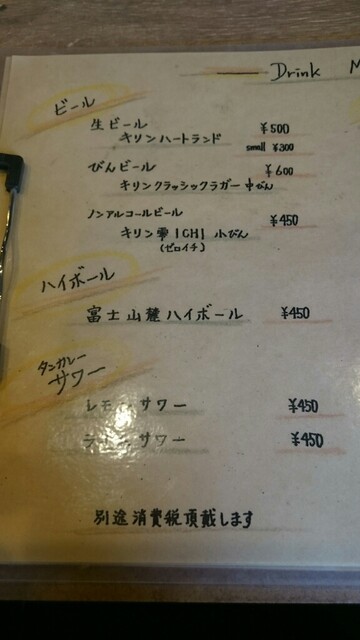 Drink M
ビール
生ビール ¥500
キリンハートランド small ¥300
びんビール ¥600
キリンクラッシックラガー 中びん
ノンアルコールビール ¥450
キリン零ICHI 小びん
(ゼロイチ)
ハイボール
富士山麓ハイボール ¥450
タンカレー
サワー
レモンサワー ¥450
サワー ¥450
別途消費税頂戴します